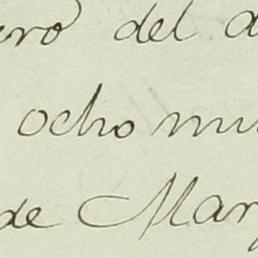 ero del a
ocho mi
de Mar